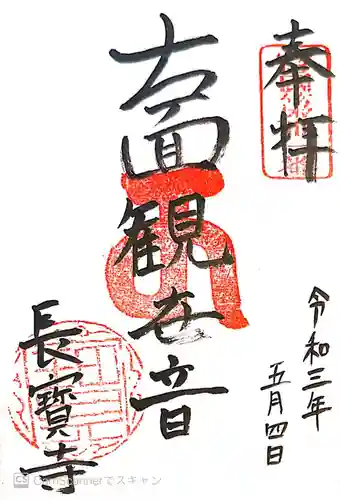 奉拝
令和三年
五月四日
十一面観世音
長寶寺
CS CamScannerでスキャン